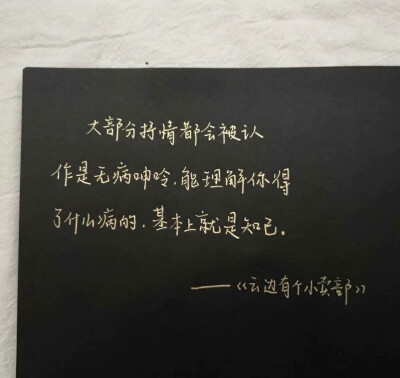 大部分抒情都会被认
作是无病呻呤.能理解你得
了什么病的.基本上就是知己。
——《云边有个小卖部》